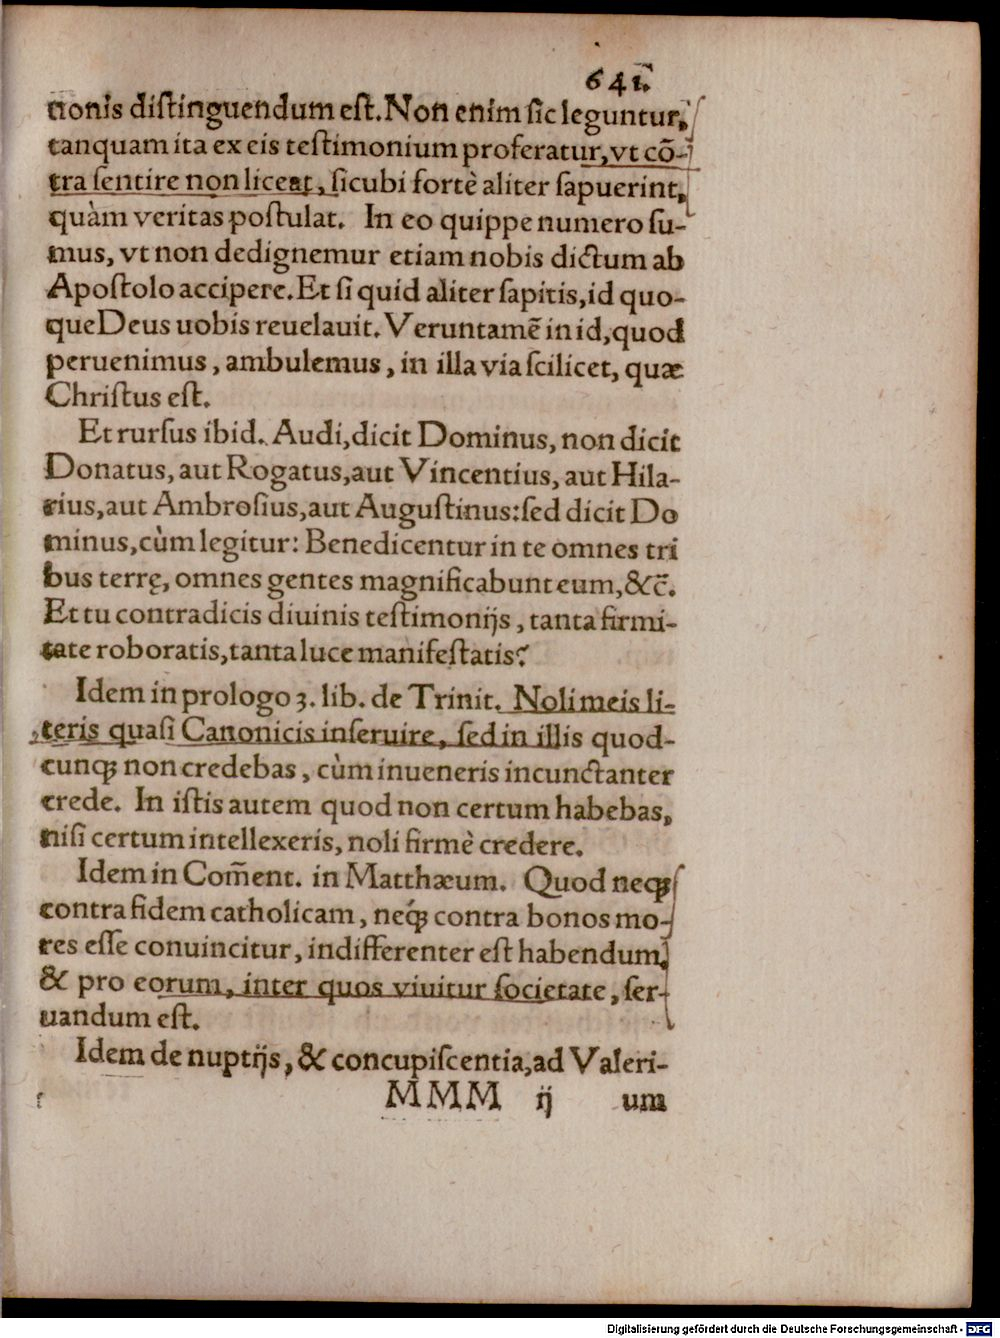 641.
nonis distinguendum est. Non enim sic leguntur,
tanquam ita ex eis testimonium proferatur, vt cõ-
tra sentire non liceat, sicubi fortè aliter sapuerint,
quàm veritas postulat. In eo quippe numero su-
mus, vt non dedignemur etiam nobis dictum ab
Apostolo accipere. Et si quid aliter sapitis, id quo-
que Deus uobis reuelauit. Veruntamẽ in id, quod
peruenimus, ambulemus, in illa via scilicet, quæ
Christus est.
Et rursus ibid. Audi, dicit Dominus, non dicit
Donatus, aut Rogatus, aut Vincentius, aut Hila-
rius, aut Ambrosius, aut Augustinus: sed dicit Do
minus, cùm legitur: Benedicentur in te omnes tri
bus terrę, omnes gentes magnificabunt eum, &c̃.
Et tu contradicis diuinis testimonijs, tanta firmi-
tate roboratis, tanta luce manifestatis?
Idem in prologo 3. lib. de Trinit. Noli meis li-
teris quasi Canonicis inseruire, sed in illis quod-
cunqꝫ non credebas, cùm inueneris incunctanter
crede. In istis autem quod non certum habebas,
nisi certum intellexeris, noli firmè credere.
Idem in Com̃ent. in Matthæum. Quod neqꝫ
contra fidem catholicam, neqꝫ́ contra bonos mo-
res esse conuincitur, indifferenter est habendum,
& pro eorum, inter quos viuitur societate, ser-
uandum est.
Idem de nuptijs, & concupiscentia, ad Valeri-
MMM ij um
Digitalisierung gefördert durch die Deutsche Forschungsgemeinschaft - DFG